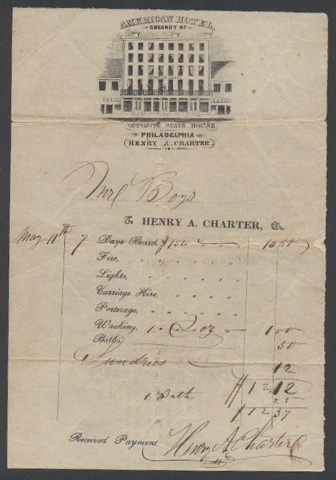 AMERICAN HOTEL,
CHESNUT ST.
OPPOSITE STATE HOUSE
PHILADELPHIA
HENRY A. CHARTER
Boys
To HENRY A. CHARTER, Dr.
May 11th 7 Days Board, $150 10.50
Fire,
Lights,
Carriage Hire,
Porterage,
Washing, 1 Doz 1 00
Baths, 50
Sundries 12
$12.12
1 Bath 25
$12 37
Received Payment Henry A Charter